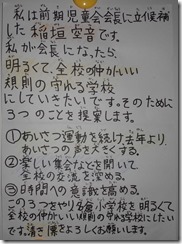 私は前期児童会会長に立候補
した稲垣空音です。
私が会長になったら、
明るくて、全校の仲がいい
規則の守れる学校
にしていきたいです。そのために
3つのことを提案します。
①あいさつ運動を続け去年より、
あいさつの声を大きくする。
②楽しい集会などを開いて
全校の交流を深める。
③時間への意識を高める。
この3つをやり名倉小学校を明るくて
全校の仲がいい規則の守れる学校にしたい
です。清き一票をよろしくお願いします。